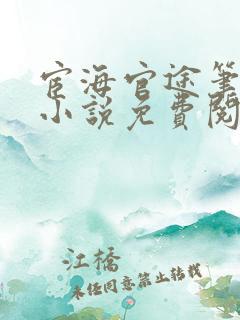 宦海官途筆
小說免費閱
江橋
未經同意禁止轉載